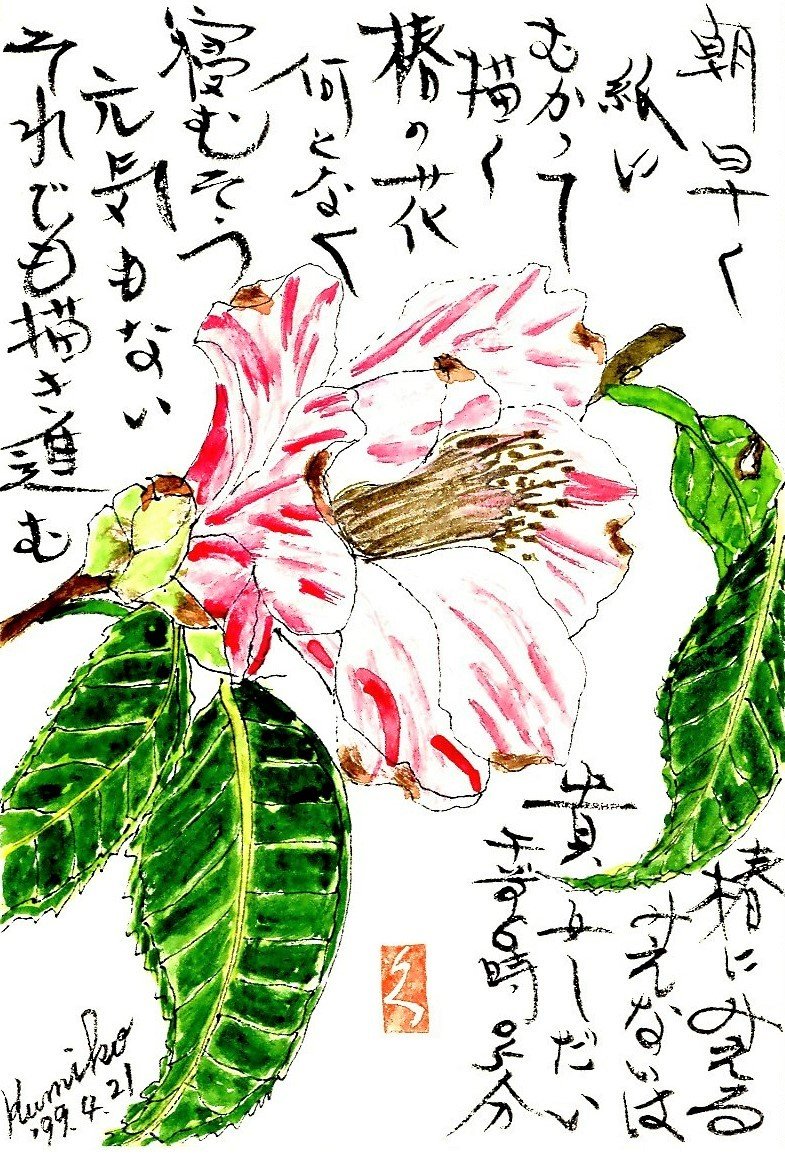 朝早く
紙に
むかって
描く
椿の花
何となく
寝むそう
元気もない
それでも描き進む
椿にみえる
みえないは
貴女しだい
6時
分
く
Kumiko
'99.4.21